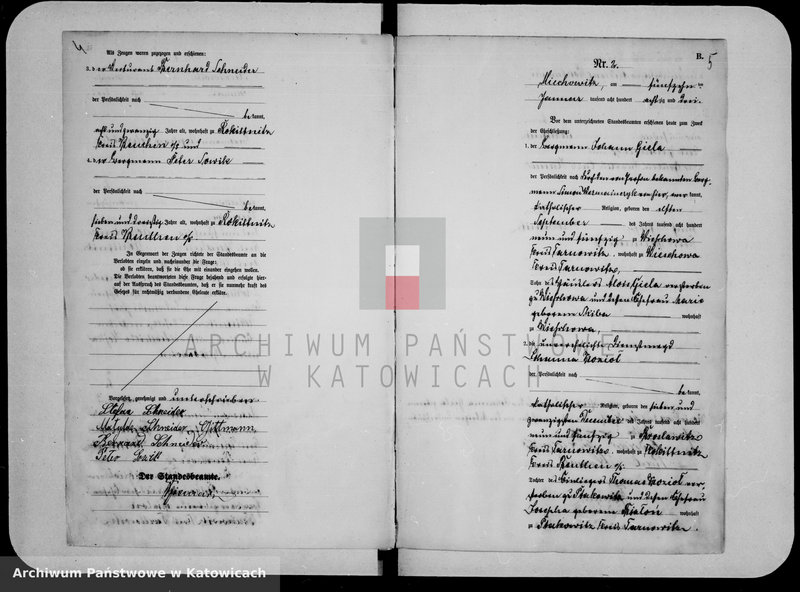 4
Als Zeugen waren zugezogen und erschienen:
3. der Bernhard Schneider
der Persönlichkeit nach
be kannt,
acht und zwanzig Jahre alt, wohnhaft zu Rokittnitz
Kreis Beuthen o/s und
4. der Bergmann Peter Sowik
der Persönlichkeit nach
be kannt,
sieben und dreißig Jahre alt, wohnhaft zu Rokittnitz
Kreis Beuthen o/s
In Gegenwart der Zeugen richtete der Standesbeamte an die
Verlobten einzeln und nacheinander die Frage:
ob sie erklären, daß sie die Ehe mit einander eingehen wollen.
Die Verlobten beantworteten diese Frage bejahend und erfolgte hier-
auf der Ausspruch des Standesbeamten, daß er sie nunmehr kraft des
Gesetzes für rechtmäßig verbundene Eheleute erkläre.
Vorgelesen, genehmigt und unterschrieben
Schneider
Schneider Wittmann
Schneider
Peter
Der Standesbeamte.
B.
5
Nr. 2.
Miechowitz, am fünfzehn ten
Januar tausend acht hundert achtzig und drei.
Vor dem unterzeichneten Standesbeamten erschienen heute zum Zweck
der Eheschließung:
1. der Bergmann Johann Giela
der Persönlichkeit nach durch den von Person bekannten Berg-
mann Simon kannt,
katholischer Religion, geboren den elften
September des Jahres tausend acht hundert
neun und fünfzig zu Wieschowa
Kreis Tarnowitz, wohnhaft zu Wieschowa
Kreis Tarnowitz,
Sohn des Häuslers Giela verstorben
zu Wieschowa und dessen Ehefrau Marie
geborenen wohnhaft
zu Wieschowa,
2. die unverehelichte Dienstmagd
Johanna Koziol
der Persönlichkeit nach
be kannt,
katholischer Religion, geboren den sieben und
zwanzigsten Dezember des Jahres tausend acht hundert
neun und fünfzig zu
Kreis Tarnowitz, wohnhaft zu Rokittnitz
Kreis Beuthen o/s
Tochter des Einliegers Thomas Koziol ver-
storben zu Ptakowitz und dessen Ehefrau
Josepha geborenen wohnhaft
zu Ptakowitz Kreis Tarnowitz.
ARCHIWUM PAŃSTWOWE
W KATOWICACH
Archiwum Państwowe w Katowicach